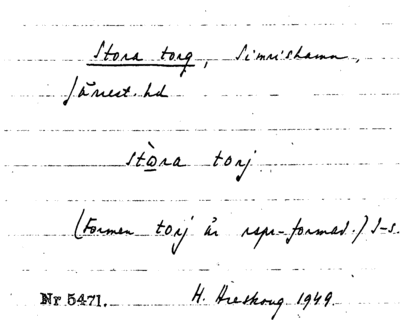 Stora torg, Simrishamn,
Järrest. hd
stòra torj
(Formen torj är rspr-formad.) I-s.
Nr 5471. H. Areskoug 1949